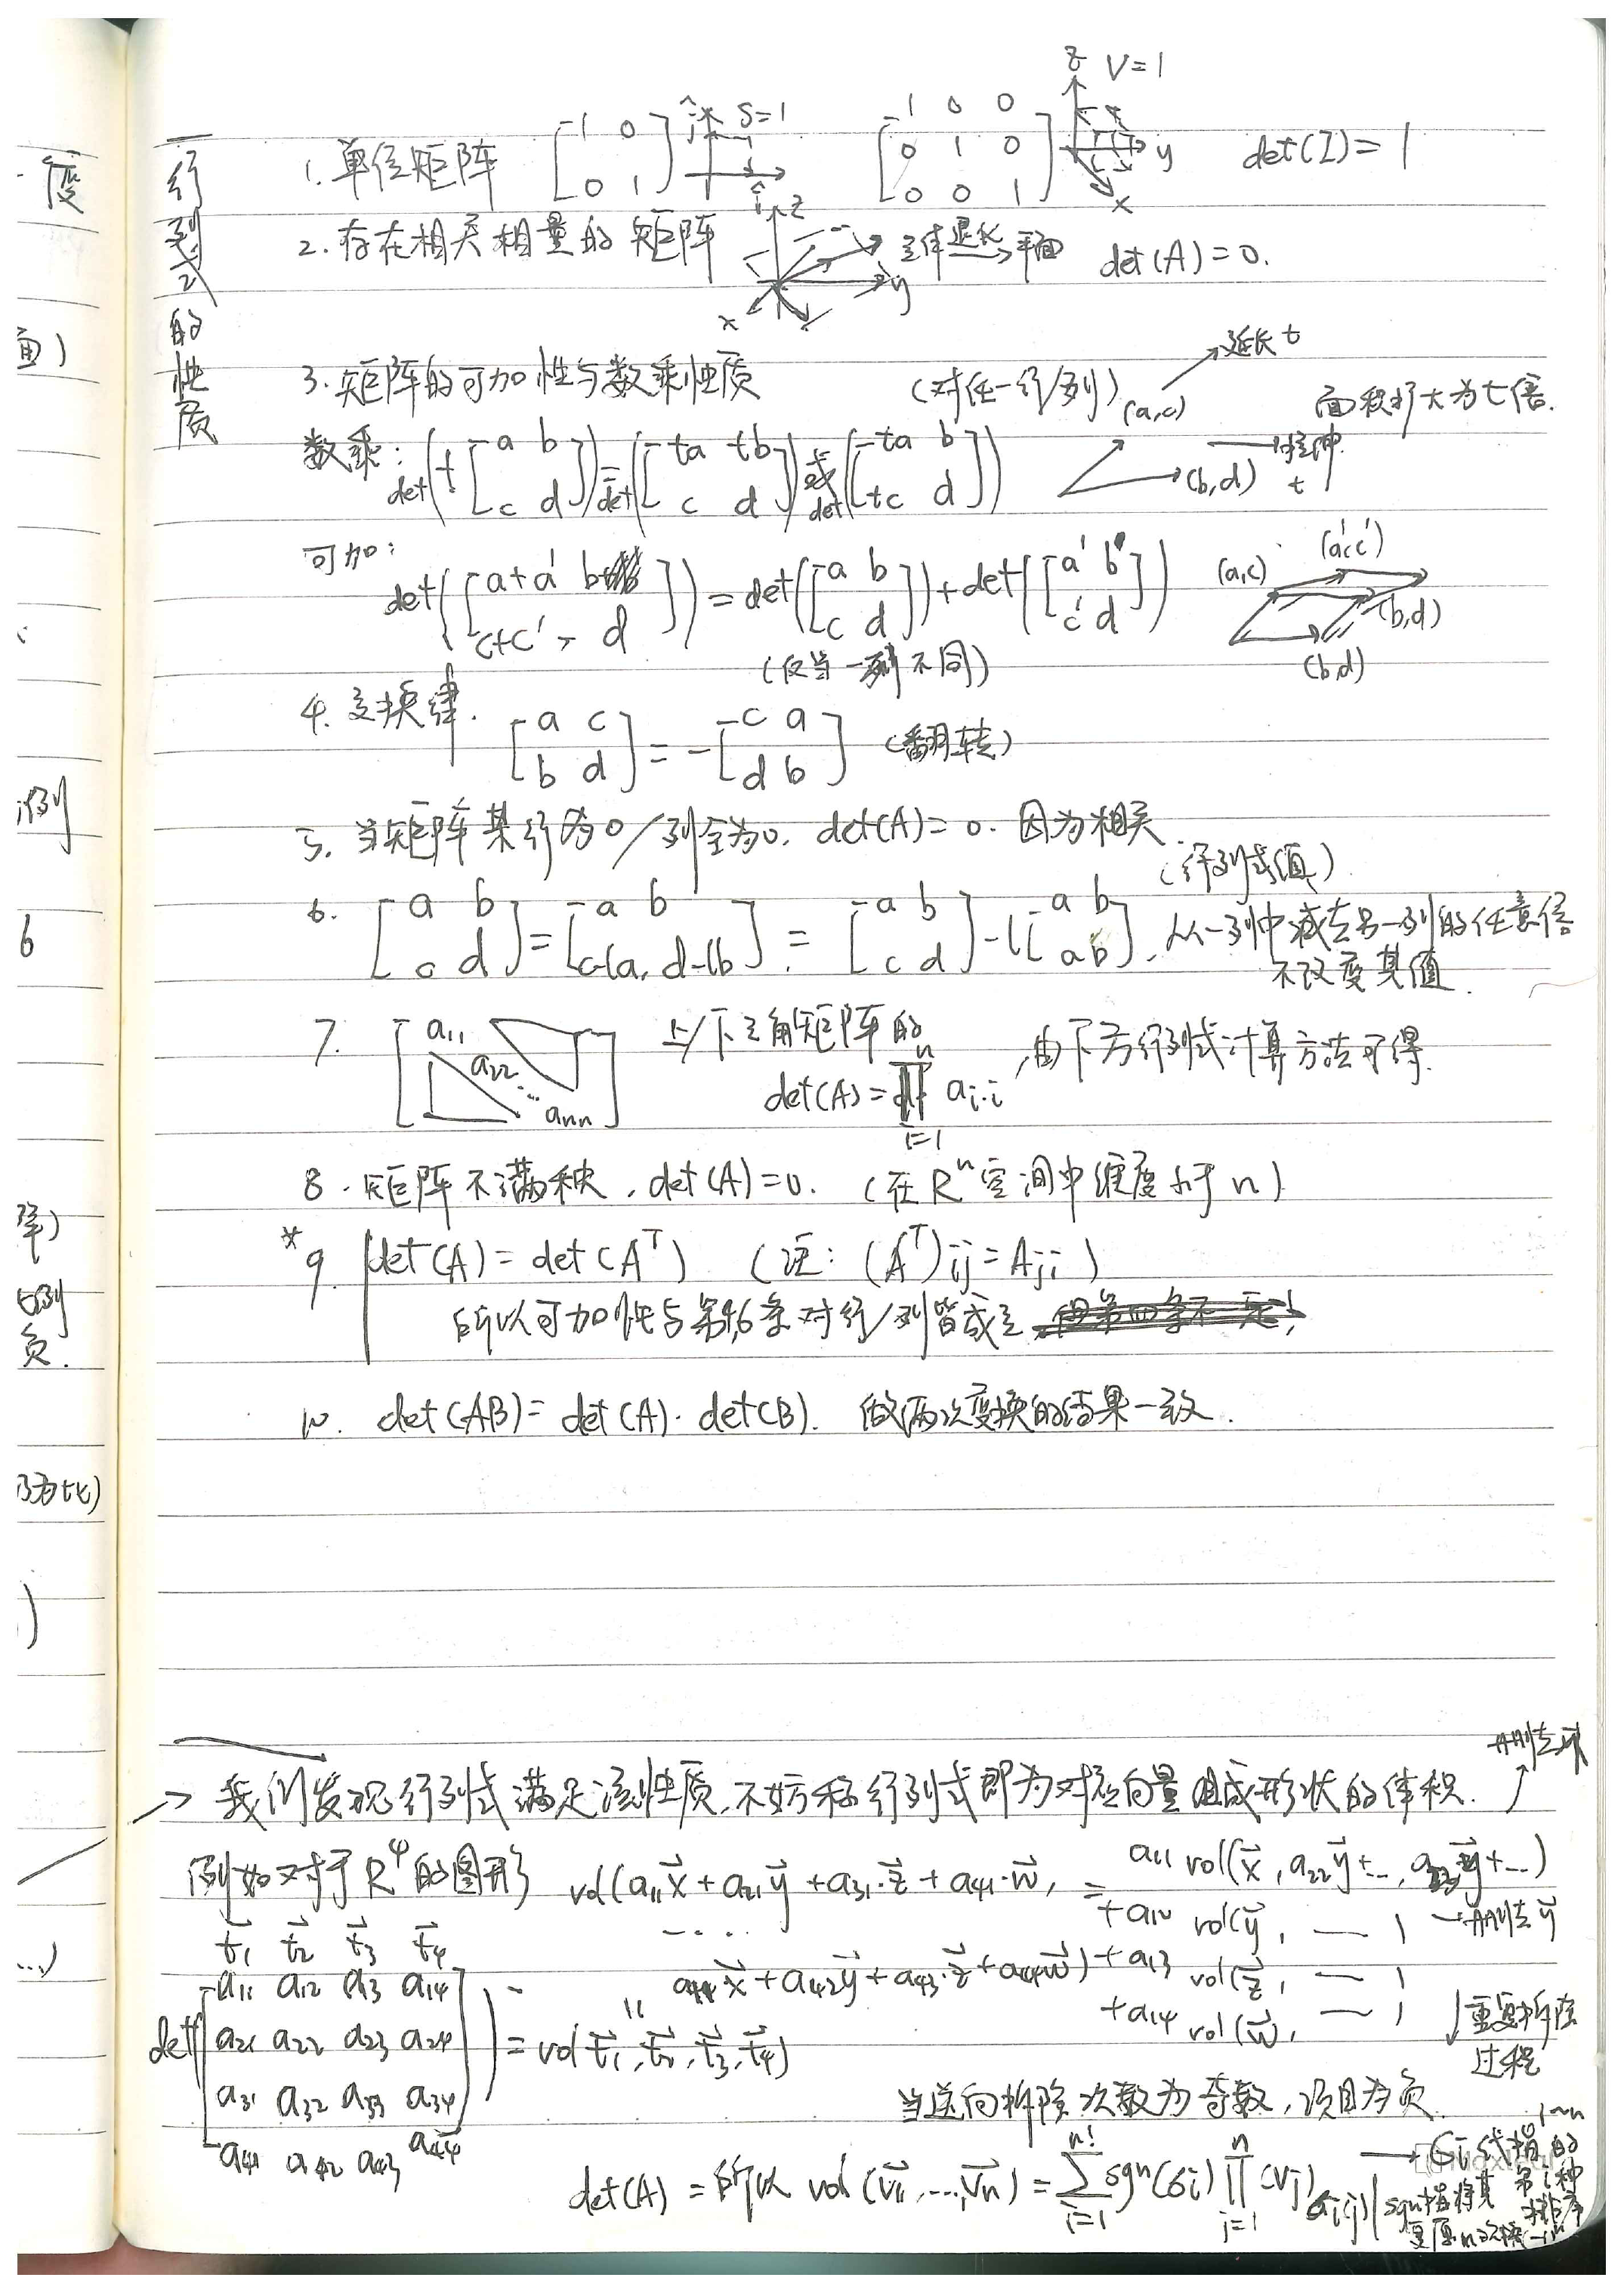 行列式的性质
1. 单位矩阵 [1 0 0 1] ĵ S=1 î [1 0 0 0 1 0 0 0 1] z V=1 y x det(I)=1
2. 存在相关相量的矩阵 z y x 立体退化→平面 det(A)=0.
3. 矩阵的可加性与数乘性质 (对任一行/列) (a,c) 延长t 面积扩大为t倍.
数乘: det(t[a b c d]) = det([ta tb c d]) 或 det([ta b tc d]) (b,d) 拉伸 t
可加: det([a+a' b c+c', d]) = det([a b c d]) + det([a' b c' d]) (a,c) (a',c') (b,d) (b,d)
(仅当一列不同)
4. 交换律. [a c b d] = -[c a d b] (翻转)
5. 当矩阵某行为0/列全为0. det(A)=0. 因为相关.
(行列式值)
6. [a b c d] = [a b c-la, d-lb] = [a b c d] - l[a b a b], 从一列中减去另一列的任意倍
不改变其值.
7. [a11 a22 ... ann] 上/下三角矩阵的 det(A)=∏ n i=1 ai·i ,由下方行列式计算方法可得.
8. 矩阵不满秩, det(A)=0. (在Rⁿ空间中维度小于n)
*9. det(A) = det(Aᵀ) (注: (Aᵀ)ij = Aji)
所以可加性与第4,6条对行/列皆成立
10. det(AB) = det(A)·det(B). 做两次变换的结果一致.
→ 我们发现行列式满足该性质,不妨称行列式即为对应向量组成形状的体积.
例如对于R⁴的图形 vol(a11x⃗ + a21y⃗ + a31·z⃗ + a41·w⃗, = a11 vol(x⃗, a22y⃗+…,
....
+a12 vol(y⃗, — )
a44x⃗ + a42y⃗ + a43·z⃗ + a44w⃗) + a13 vol(z⃗, — )
+a14 vol(w⃗, — ) ↓重复拆除过程
t⃗1 t⃗2 t⃗3 t⃗4
det([a11 a12 a13 a14
a21 a22 a23 a24
a31 a32 a33 a34
a41 a42 a43 a44]) = vol(t⃗1, t⃗2, t⃗3, t⃗4)
当逆向拆除次数为奇数,项目为负.
det(A) = 所以 vol(v⃗1, ..., v⃗n) = ∑ n! i=1 sgn(σi) ∏ n j=1 (vj)σi(j)
度
面)
例
6
负.